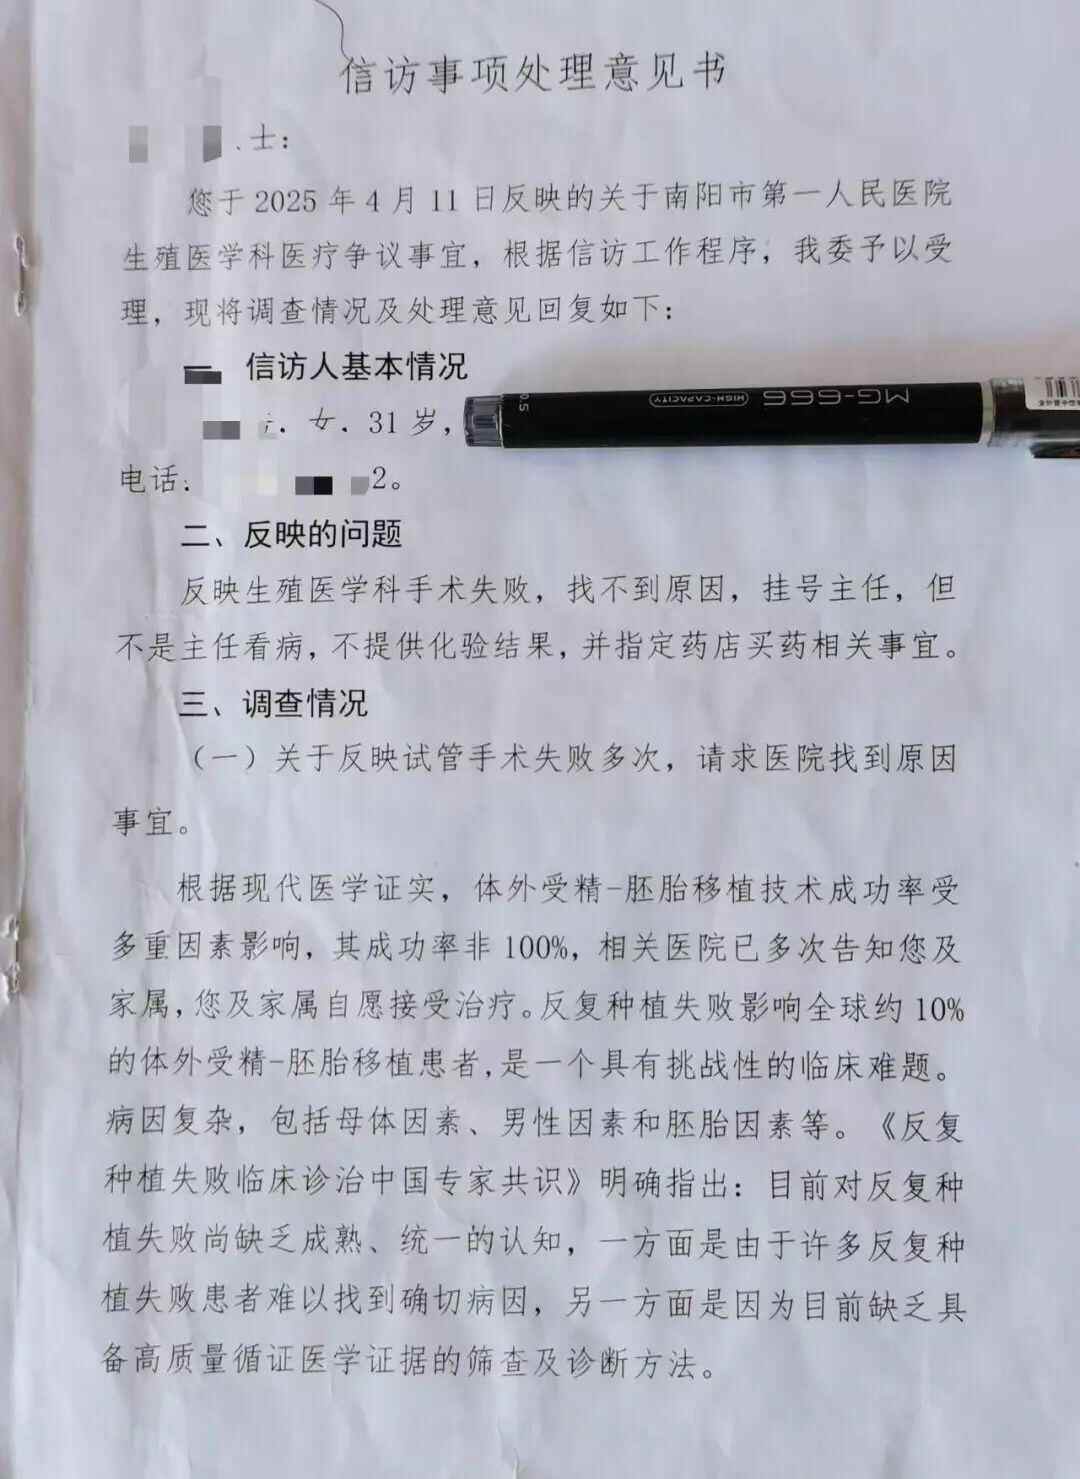 信访事项处理意见书
士：
您于 2025 年 4 月 11 日反映的关于南阳市第一人民医院
生殖医学科医疗争议事宜，根据信访工作程序，我委予以受
理，现将调查情况及处理意见回复如下：
一 信访人基本情况
女．31 岁，
电话： 2。
二、反映的问题
反映生殖医学科手术失败，找不到原因，挂号主任，但
不是主任看病，不提供化验结果，并指定药店买药相关事宜。
三、调查情况
（一）关于反映试管手术失败多次，请求医院找到原因
事宜。
根据现代医学证实，体外受精-胚胎移植技术成功率受
多重因素影响，其成功率非 100%，相关医院已多次告知您及
家属，您及家属自愿接受治疗。反复种植失败影响全球约 10%
的体外受精-胚胎移植患者，是一个具有挑战性的临床难题。
病因复杂，包括母体因素、男性因素和胚胎因素等。《反复
种植失败临床诊治中国专家共识》明确指出：目前对反复种
植失败尚缺乏成熟、统一的认知，一方面是由于许多反复种
植失败患者难以找到确切病因，另一方面是因为目前缺乏具
备高质量循证医学证据的筛查及诊断方法。
MG-666
HIGH-CAPACITY
0.5